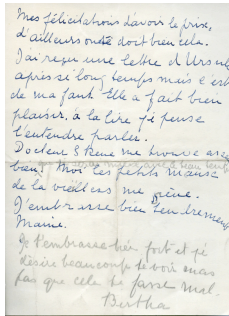 Mes félicitations d'avoir le prix,
d'ailleurs on te doit bien cela.
J'ai reçu une lettre d'Ursule
après si long temps mais c'est
de ma faut. Elle a fait bien
plaisir, à la lire je pense
l'entendre parler.
Docteur me trouve assez
bien! Moi les petits maux
de la vieillesse me gêne.
J'embrasse bien tendrement
Mamie.
Je t'embrasse bien fort et je
désire beaucoup te voir mais
pas que cela te fasse mal.
Bertha